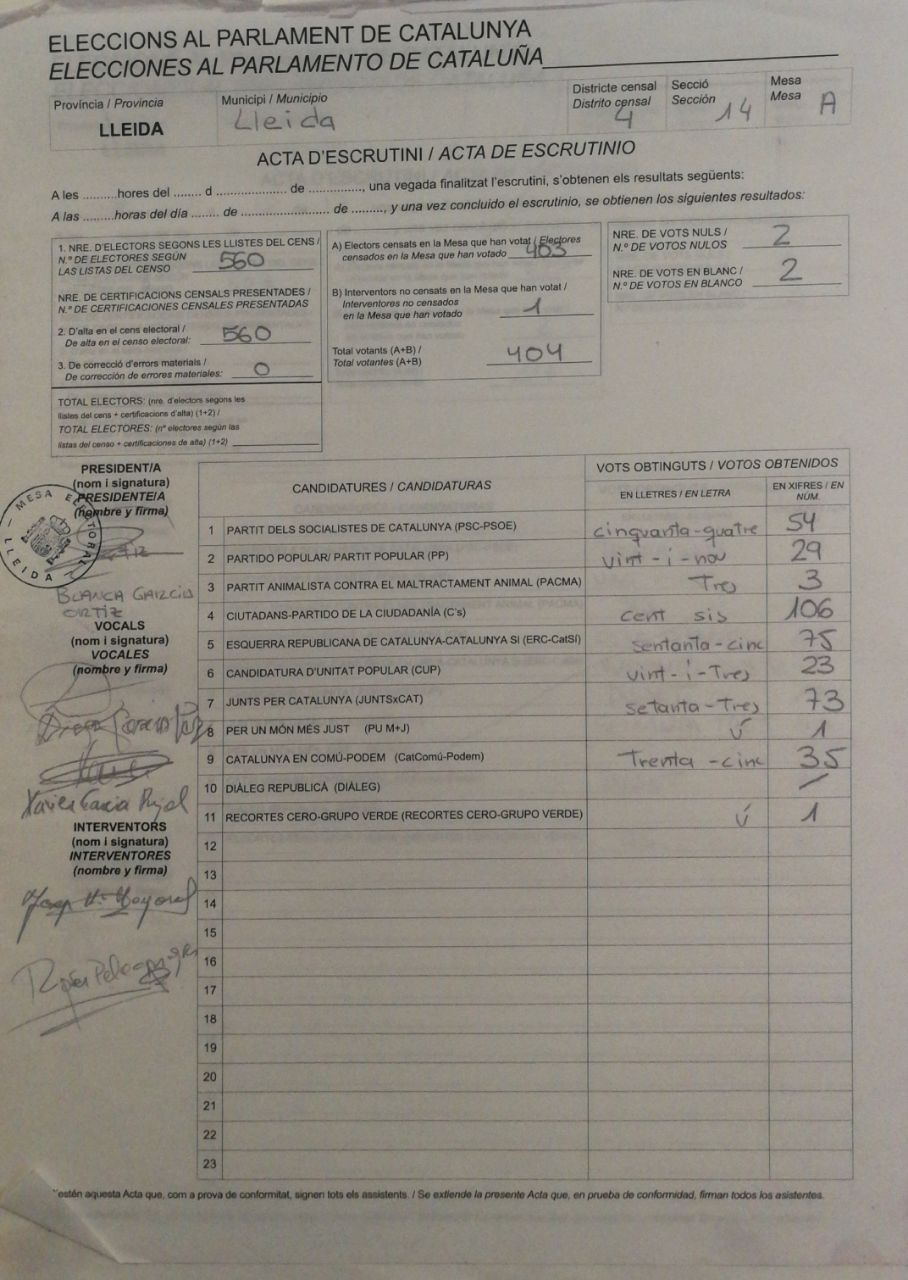 ELECCIONS AL PARLAMENT DE CATALUNYA
ELECCIONES AL PARLAMENTO DE CATALUÑA
Província / Provincia
LLEIDA
Municipi / Municipio
Lleida
Districte censal
Distrito censal
4
Secció
Sección
14
Mesa
Mesa
A
ACTA D'ESCRUTINI / ACTA DE ESCRUTINIO
A les .........hores del ........ d .................. de .............., una vegada finalitzat l'escrutini, s'obtenen els resultats següents:
A las ........horas del día ........ de ....................... de ........., y una vez concluido el escrutinio, se obtienen los siguientes resultados:
1. NRE. D'ELECTORS SEGONS LES LLISTES DEL CENS /
N.º DE ELECTORES SEGÚN
LAS LISTAS DEL CENSO 560
NRE. DE CERTIFICACIONS CENSALS PRESENTADES /
N.º DE CERTIFICACIONES CENSALES PRESENTADAS
2. D'alta en el cens electoral /
De alta en el censo electoral: 560
3. De correcció d'errors materials /
De corrección de errores materiales: 0
TOTAL ELECTORS: (nre. d'electors segons les
llistes del cens + certificacions d'alta) (1+2) /
TOTAL ELECTORES: (nº electores según las
listas del censo + certificaciones de alta) (1+2)
A) Electors censats en la Mesa que han votat / Electores
censados en la Mesa que han votado 403
B) Interventors no censats en la Mesa que han votat /
Interventores no censados
en la Mesa que han votado 1
Total votants (A+B) /
Total votantes (A+B) 404
NRE. DE VOTS NULS /
N.º DE VOTOS NULOS 2
NRE. DE VOTS EN BLANC /
N.º DE VOTOS EN BLANCO 2
PRESIDENT/A
(nom i signatura)
PRESIDENTE/A
(nombre y firma)
MESA ELECTORAL
LLEIDA
BLANCA GARCIA
ORTIZ
VOCALS
(nom i signatura)
VOCALES
(nombre y firma)
Xavier Garcia Pujol
INTERVENTORS
(nom i signatura)
INTERVENTORES
(nombre y firma)
CANDIDATURES / CANDIDATURAS
VOTS OBTINGUTS / VOTOS OBTENIDOS
EN LLETRES / EN LETRA
EN XIFRES / EN NÚM.
1 PARTIT DELS SOCIALISTES DE CATALUNYA (PSC-PSOE) cinquanta-quatre 54
2 PARTIDO POPULAR/ PARTIT POPULAR (PP) vint-i-nou 29
3 PARTIT ANIMALISTA CONTRA EL MALTRACTAMENT ANIMAL (PACMA) Tres 3
4 CIUTADANS-PARTIDO DE LA CIUDADANÍA (C's) cent sis 106
5 ESQUERRA REPUBLICANA DE CATALUNYA-CATALUNYA SÍ (ERC-CatSí) sentanta-cinc 75
6 CANDIDATURA D'UNITAT POPULAR (CUP) vint-i-Tres 23
7 JUNTS PER CATALUNYA (JUNTSxCAT) setanta-Tres 73
8 PER UN MÓN MÉS JUST (PU M+J) ú 1
9 CATALUNYA EN COMÚ-PODEM (CatComú-Podem) Trenta-cinc 35
10 DIÀLEG REPUBLICÀ (DIÀLEG) /
11 RECORTES CERO-GRUPO VERDE (RECORTES CERO-GRUPO VERDE) ú 1
12
13
14
15
16
17
18
19
20
21
22
23
estén aquesta Acta que, com a prova de conformitat, signen tots els assistents. / Se extiende la presente Acta que, en prueba de conformidad, firman todos los asistentes.